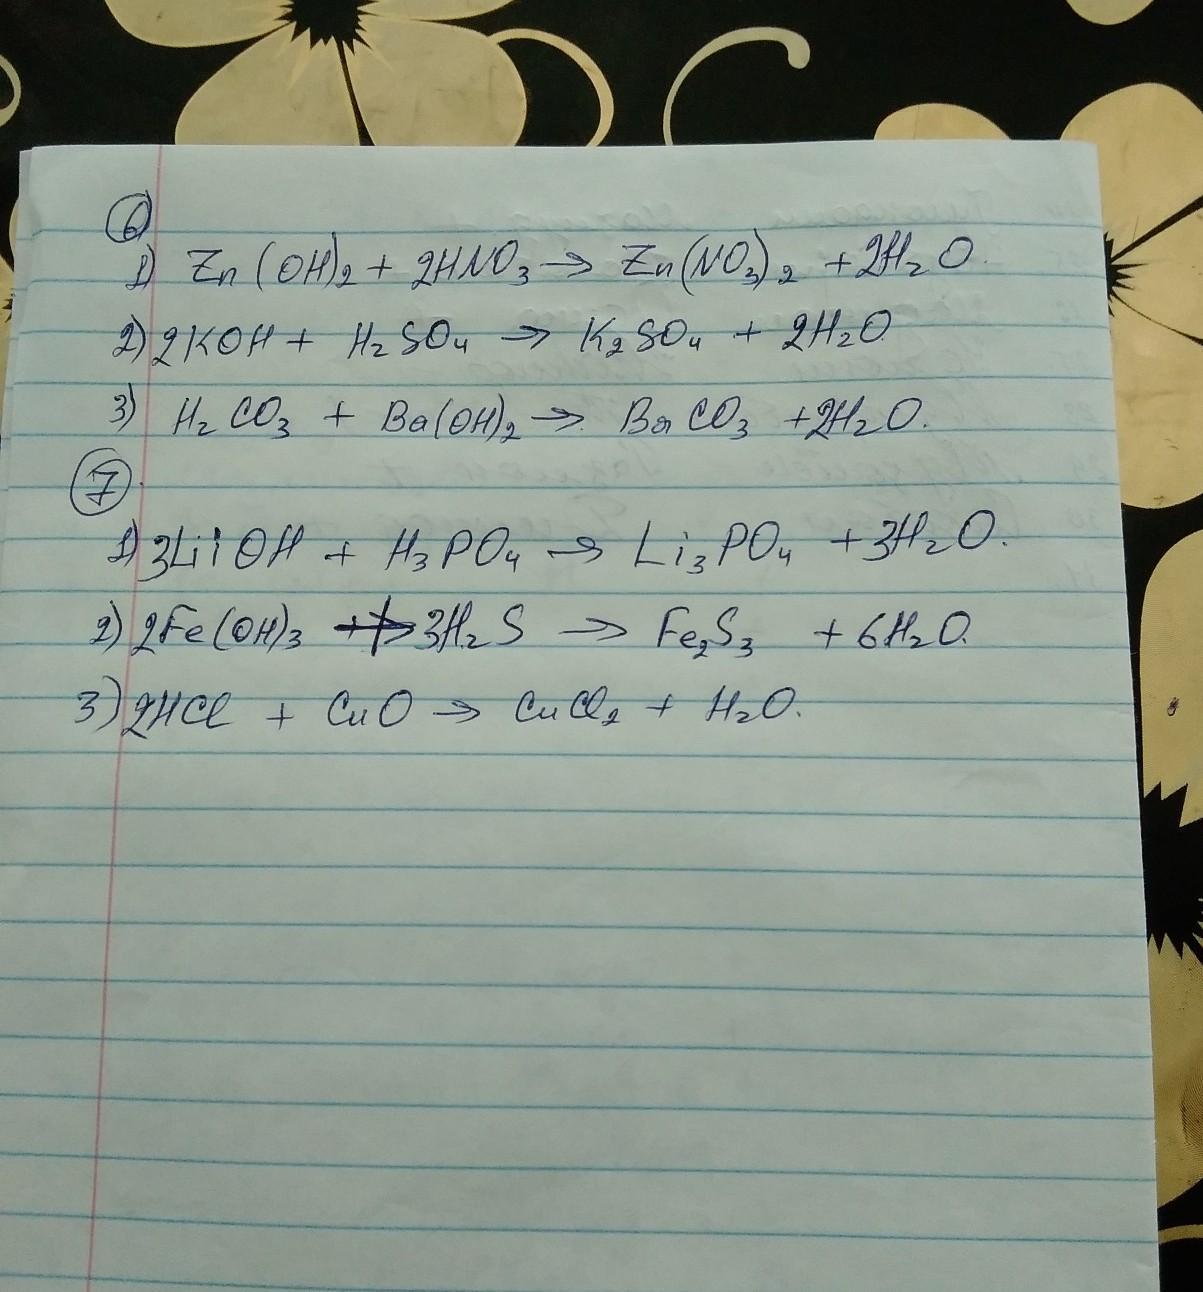 6
1) Zn(OH)₂ + 2HNO₃ → Zn(NO₃)₂ + 2H₂O.
2) 2KOH + H₂SO₄ → K₂SO₄ + 2H₂O
3) H₂CO₃ + Ba(OH)₂ → BaCO₃ + 2H₂O.
7.
1) 3LiOH + H₃PO₄ → Li₃PO₄ + 3H₂O.
2) 2Fe(OH)₃ + 3H₂S → Fe₂S₃ + 6H₂O.
3) 2HCl + CuO → CuCl₂ + H₂O.